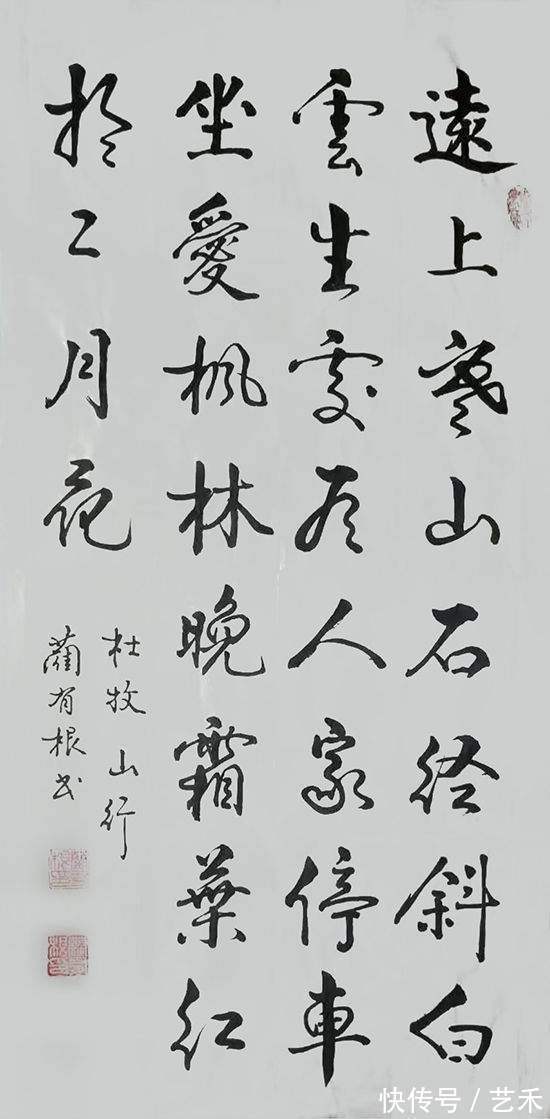 遠上寒山石径斜白
雲生處有人家停車
坐愛楓林晚霜葉紅
於二月花
杜牧 山行
藺有根书
快传号 / 艺禾